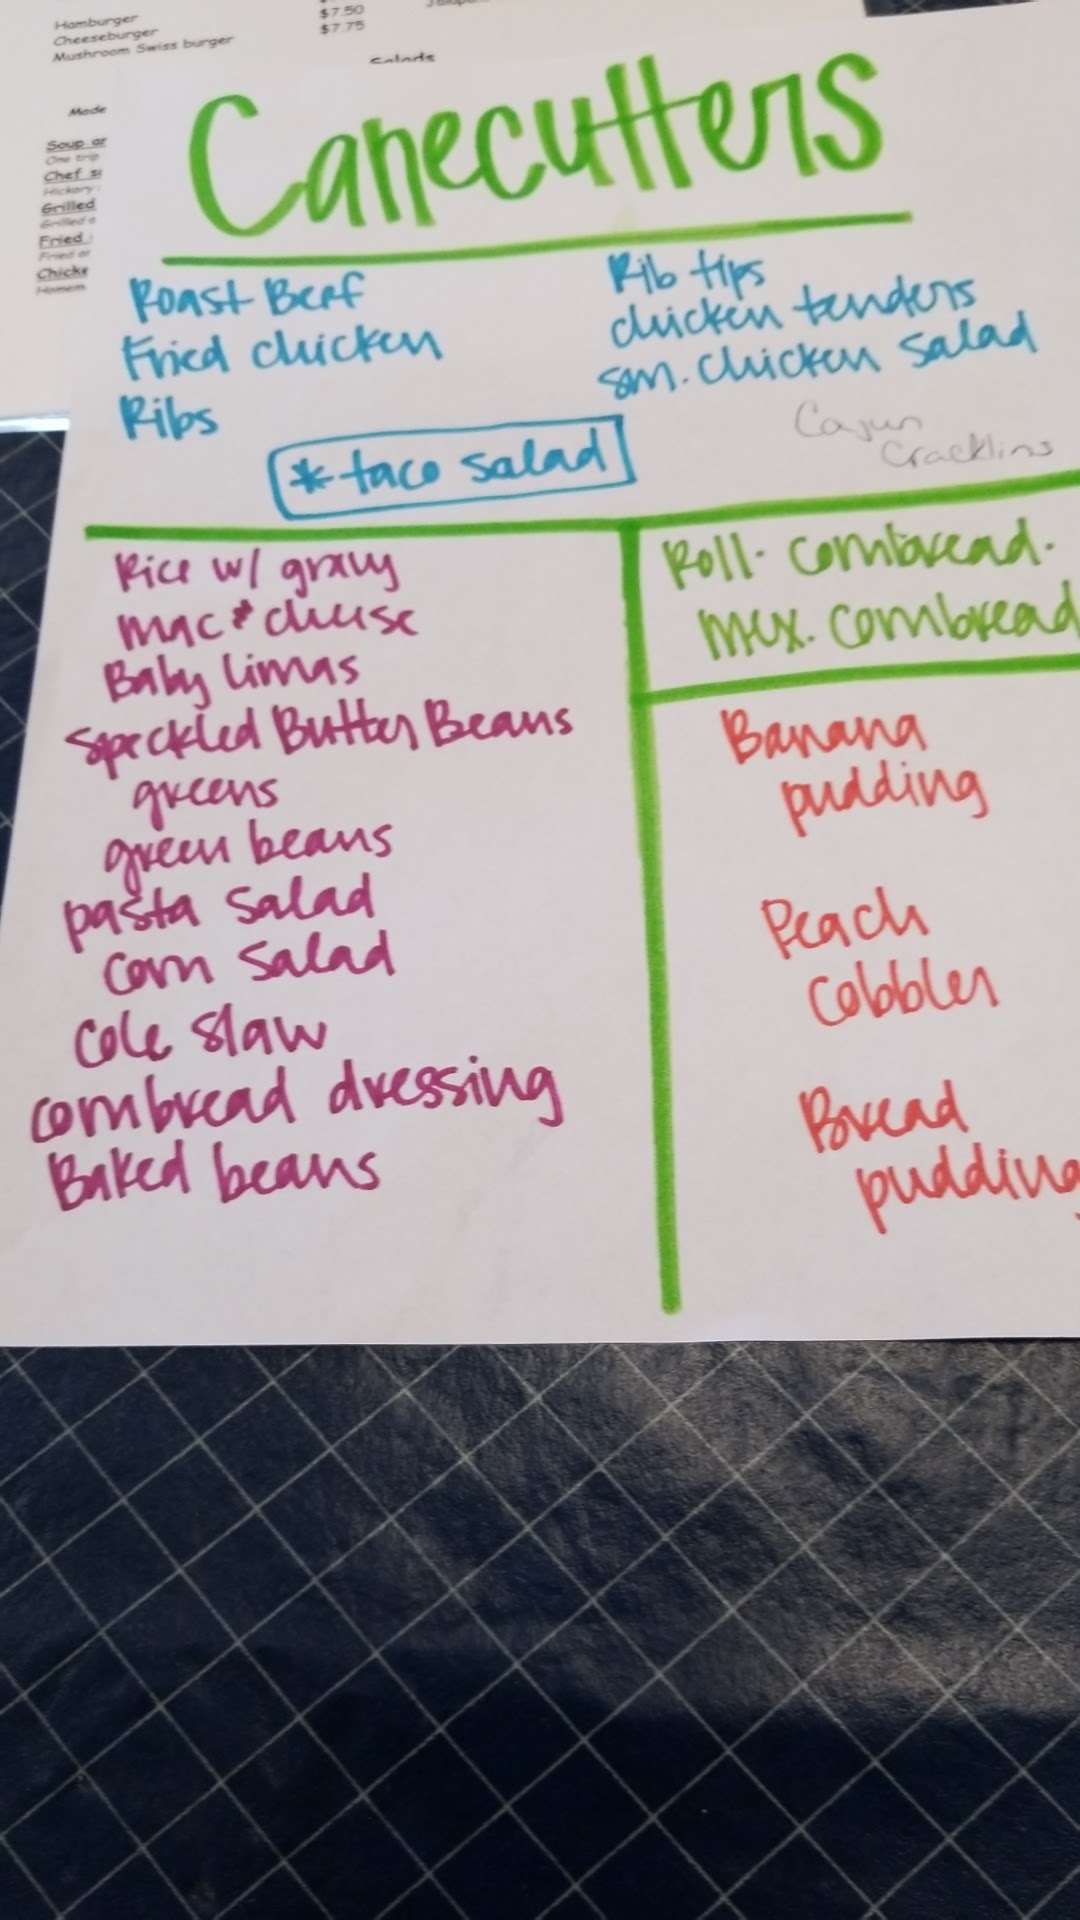 Hamburger
Cheeseburger $7.50
Mushroom Swiss burger $7.75
Salads
Made
Soup
One trip
Chef
Hickory
Grilled
Grilled
Fried
Fried
Canecutters
Roast Beef
Fried chicken
Ribs
Rib tips
chicken tenders
sm. chicken salad
Cajun
Cracklins
*taco salad
Rice w/ gravy
mac & cheese
Baby limas
Speckled Butter Beans
greens
green beans
pasta salad
corn salad
cole slaw
cornbread dressing
Baked beans
Roll · cornbread ·
mex. cornbread
Banana
pudding
Peach
cobbler
Bread
pudding